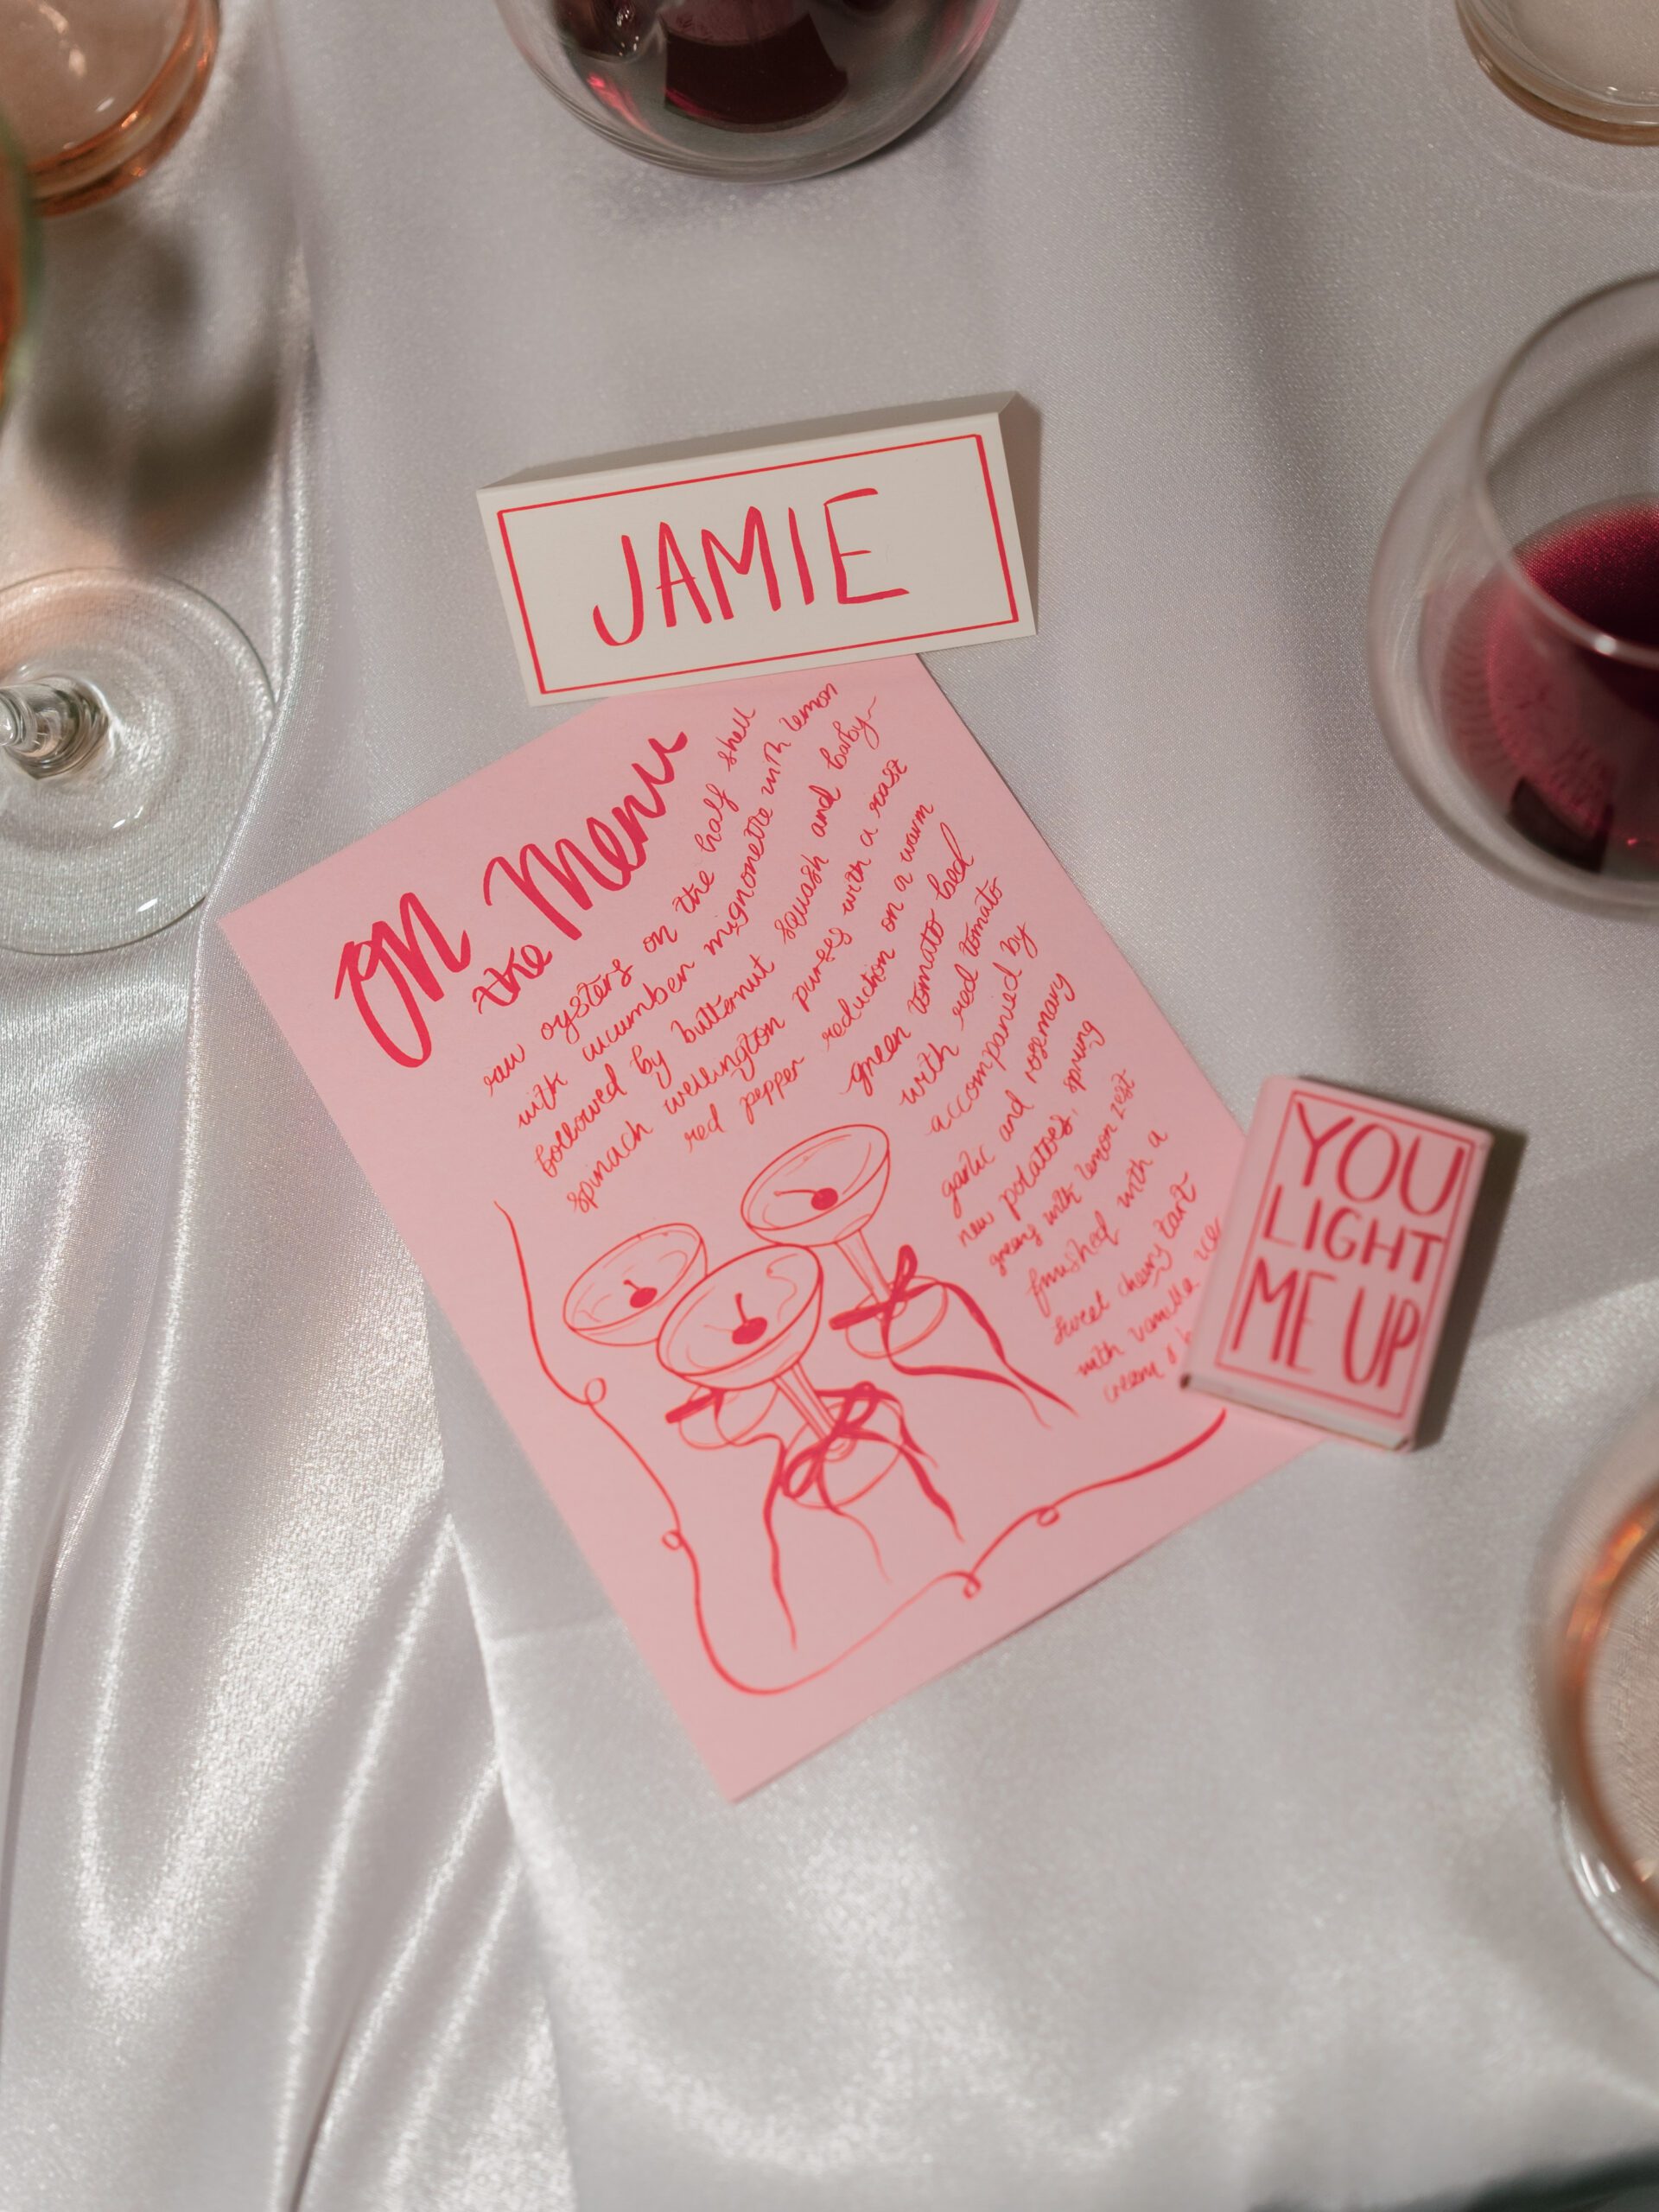 JAMIE
On
the Menu
raw oysters on the half shell
with cucumber mignonette with lemon
followed by butternut squash and baby
spinach wellington purses with a roast
red pepper reduction on a warm
green tomato bed
with red tomato
accompanied by
garlic and rosemary
new potatoes, spring
greens with lemon zest
finished with a
sweet cherry tart
with vanilla ice
cream
YOU
LIGHT
ME UP